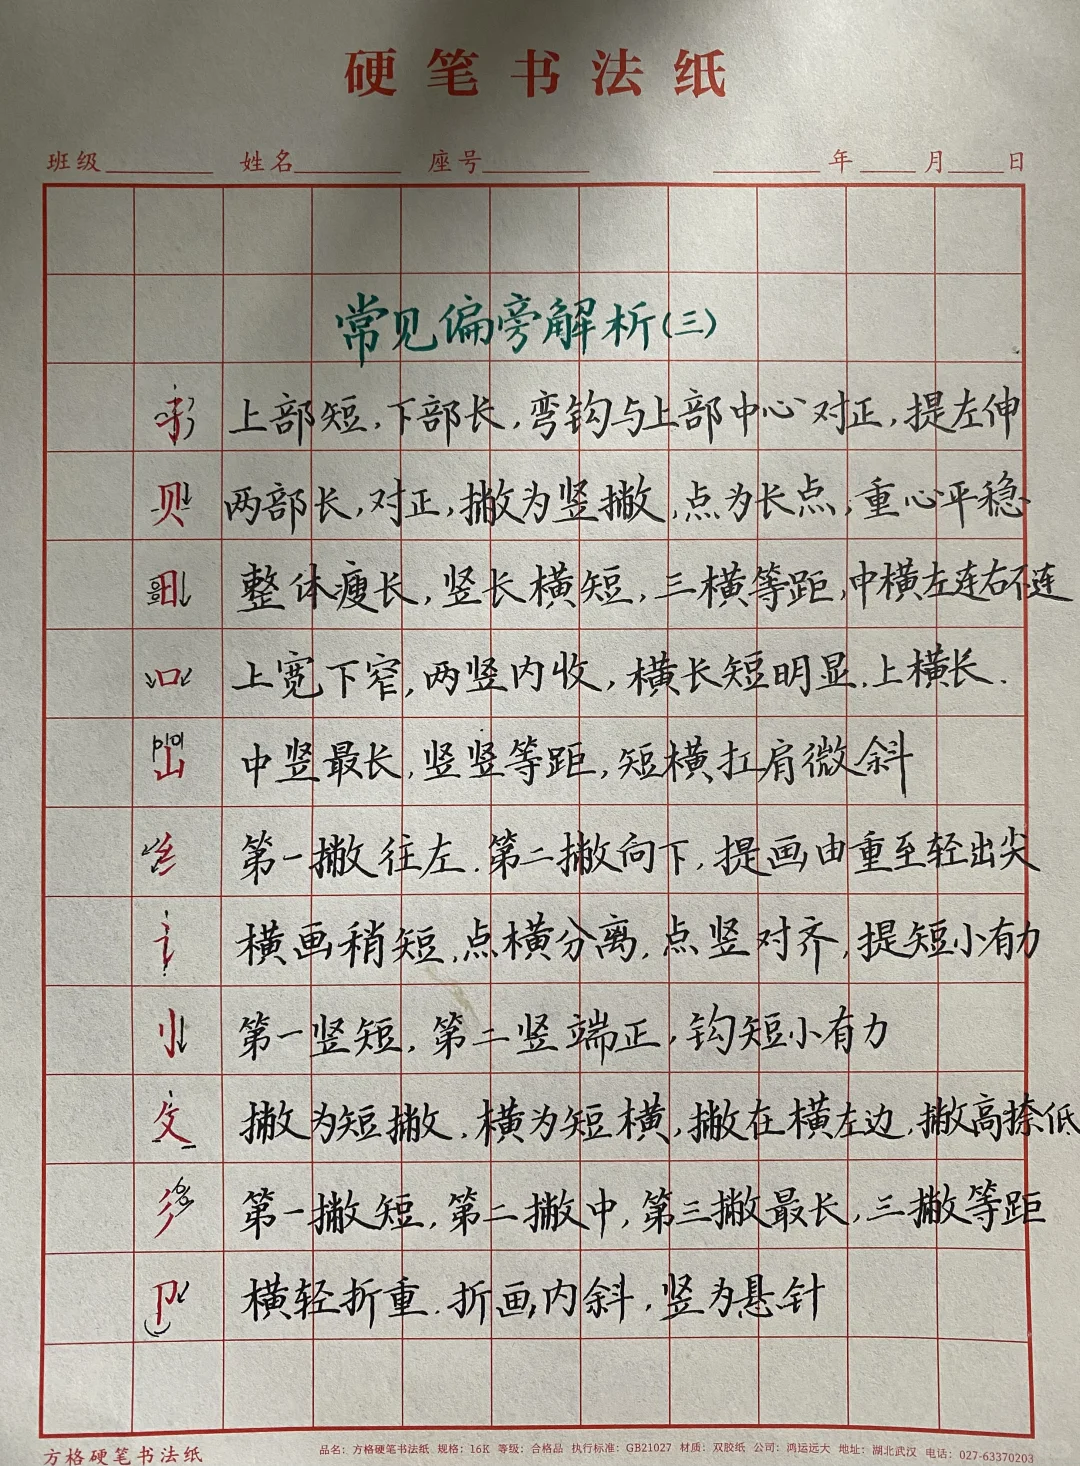 硬笔书法纸
班级 姓名 座号 年 月 日
常见偏旁解析(三)
上部短,下部长,弯钩与上部中心对正,提左伸
贝 两部长,对正,撇为竖撇,点为长点,重心平稳
整体瘦长,竖长横短,三横等距,中横左连右不连
口 上宽下窄,两竖内收,横长短明显,上横长.
山 中竖最长,竖竖等距,短横扛肩微斜
纟 第一撇往左.第二撇向下,提画由重至轻出尖
讠 横画稍短,点横分离,点竖对齐,提短小有力
刂 第一竖短,第二竖端正,钩短小有力
攵 撇为短撇,横为短横,撇在横左边,撇高捺低
彡 第一撇短,第二撇中,第三撇最长,三撇等距
卩 横轻折重.折画内斜,竖为悬针
方格硬笔书法纸 品名:方格硬笔书法纸 规格:16K 等级:合格品 执行标准:GB21027 材质:双胶纸 公司:鸿运远大 地址:湖北武汉 电话:027-63370203